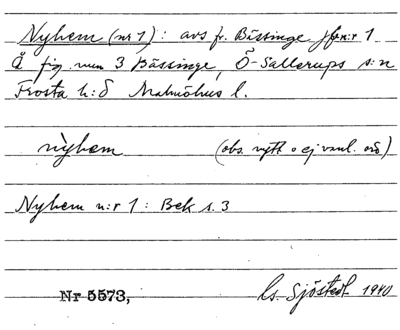 Nyhem (nr 1): avs fr. Bässinge jfr n:r 1
Å fig. num 3 Bässinge, Ö-Sallerups s:n
Frosta h:d Malmöhus l.
nyhem (obs. nytt o ej vanl. ord)
Nyhem n:r 1: Bek s. 3
Nr 5573, G. Sjöstedt 1940